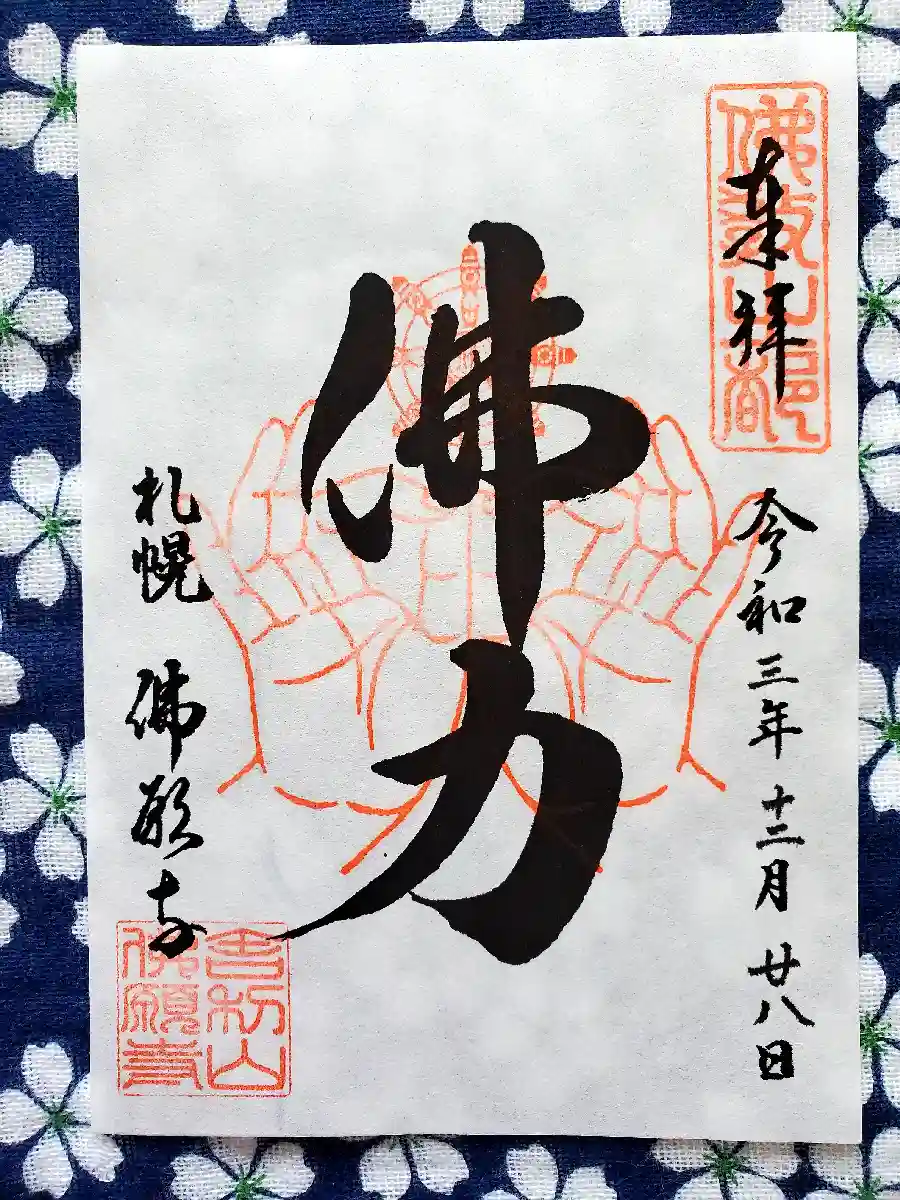 奉拝
令和三年十二月廿八日
佛力
札幌 佛願寺
舎利山
佛願寺